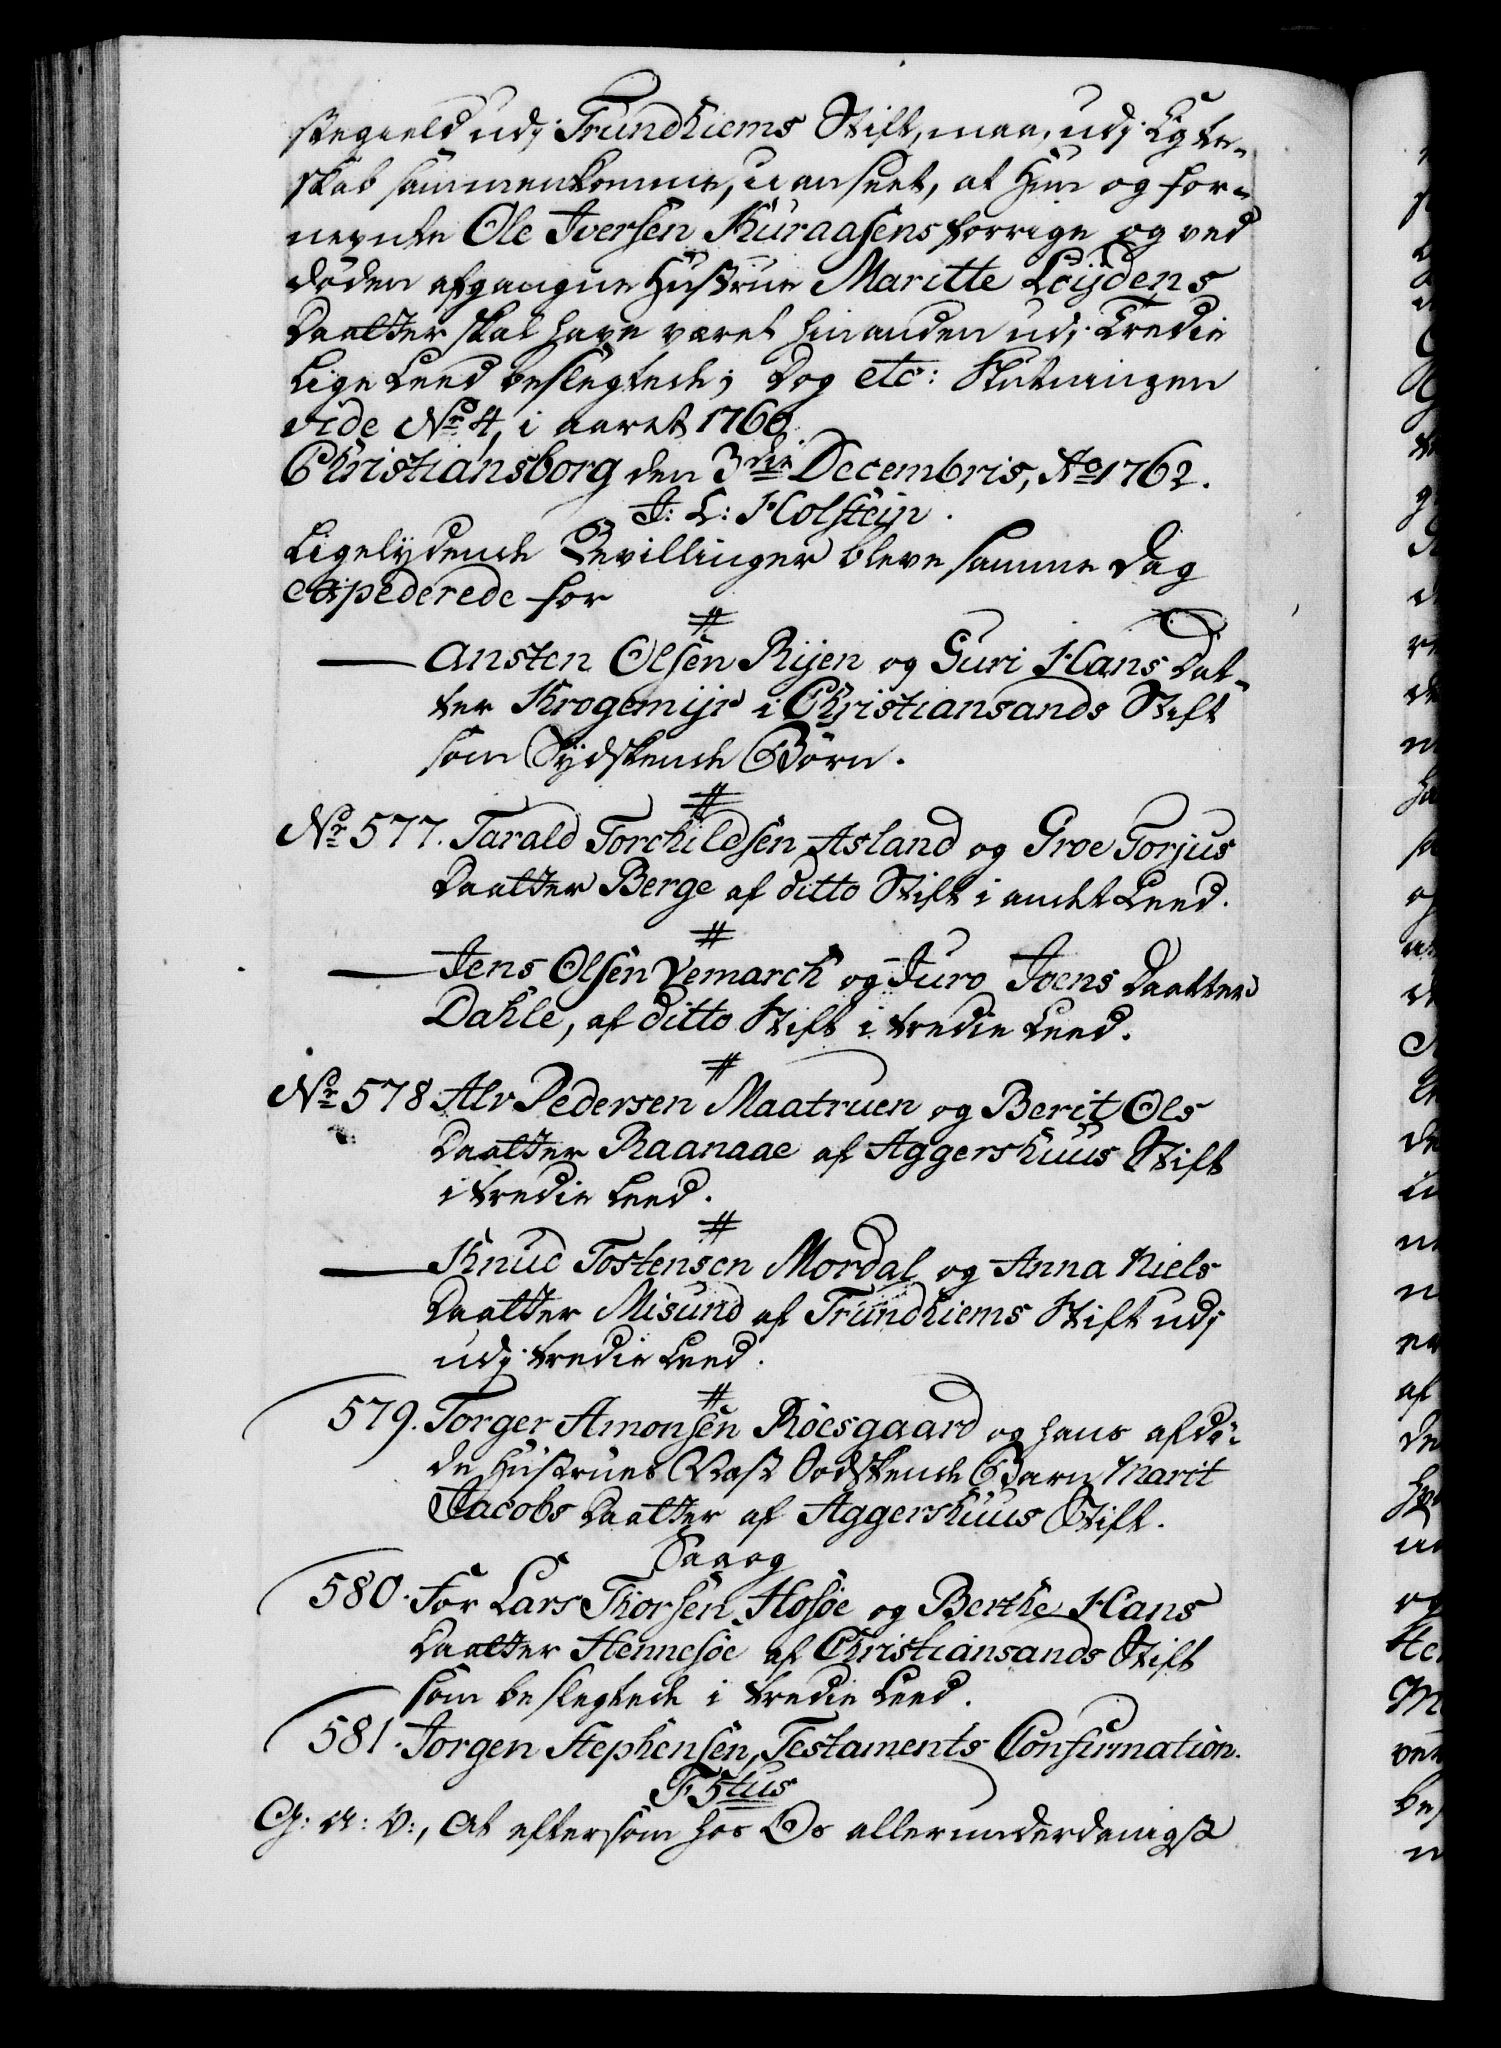 stegield udj Trundhiems Stift, maa, udj Egte-
skab sammenkomme, uanseet, at Hun og for-
nevnte Ole Iversen Kuraasens forrige og ved
døden afgangne Hustrue Maritte Loijdens
Daatter skal have været hinanden udj Tredie
Lige Leed beslegtede; Dog etc: Slutningen
vide No 4, i aaret 1760.
Christiansborg den 3die Decembris, Ao 1762.
J: L: Holstein.
Ligelydende Bevillinger bleve samme Dag
expederede for
#
— Ansten Olsen Rijen og Guri Hans Dat-
ter Krogemijr i Christiansands Stift
som Sydskende Børn.
#
No 577. Tarald Torchildsen Asland og Groe Torjus
Daatter Berge af ditto Stift i andet Leed.
#
— Jens Olsen Vemarch og Juro Joens Daatter
Dahle, af ditto Stift i tredie Leed.
#
No 578 Alv Pedersen Maatruen og Berit Ols
Daatter Raanaae af Aggershuus Stift
i tredie Leed.
#
— Knud Tostensen Mordal og Anna Niels
Daatter Misund af Trundhiems Stift udj
udj tredie Leed.
#
579. Torger Amonsen Röesgaard og hans afdö-
de Hustrues Næst Sødskende Barn Marit
Jacobs Daatter af Aggershuus Stift.
Saa og
580. For Lars Thorsen Hosöe og Berthe Hans
Daatter Hennesöe af Christiansands Stift
som beslegtede i tredie Leed.
581. Jorgen Stephensen, Testaments Confirmation.
F 5tus
G: A: V:, At eftersom hos Os allerunderdanigst